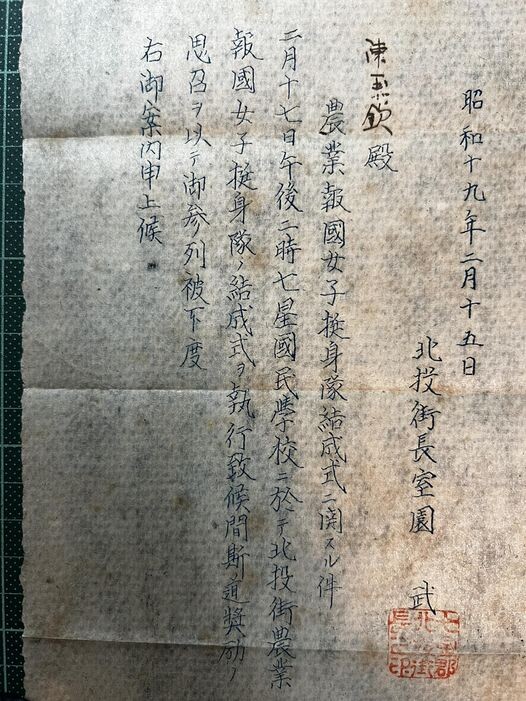 昭和十九年二月十五日
北投街長室園 武
陳玉欽殿
農業報國女子挺身隊結成式ニ関スル件
二月十七日午後二時七星國民學校ニ於テ北投街農業
報國女子挺身隊ノ結成式ヲ執行致候間斯道奬励ノ
思召ヲ以テ御参列被下度
右御案内申上候
七星郡
北投街
長之印